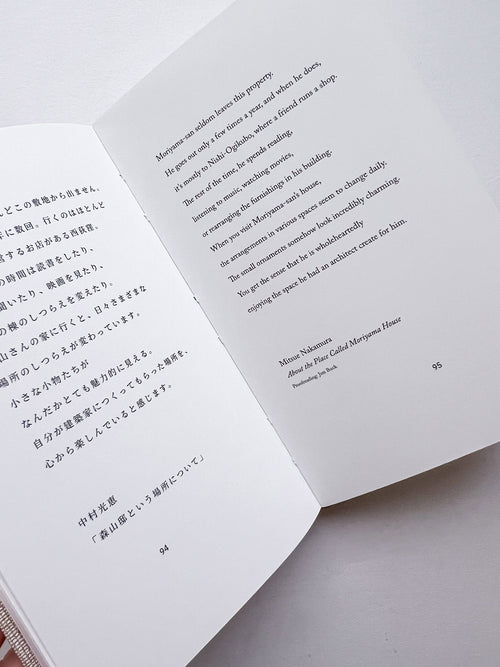 んどこの敷地から出ません。
に数回。行くのはほとんど
するお店がある西荻窪。
の時間は読書をしたり、
聞いたり、映画を見たり、
の棟のしつらえを変えたり。
山さんの家に行くと、日々さまざまな
場所のしつらえが変わっています。
小さな小物たちが
なんだかとても魅力的に見える。
自分が建築家につくってもらった場所を、
心から楽しんでいると感じます。
中村光恵
「森山邸という場所について」
94
Moriyama-san seldom leaves this property.
He goes out only a few times a year, and when he does,
it's mostly to Nishi-Ogikubo, where a friend runs a shop.
The rest of the time, he spends reading,
listening to music, watching movies,
or rearranging the furnishings in his building.
When you visit Moriyama-san's house,
the arrangements in various spaces seem to change daily.
The small ornaments somehow look incredibly charming.
You get the sense that he is wholeheartedly
enjoying the space he had an architect create for him.
Mitsue Nakamura
About the Place Called Moriyama House
Proofreading: Jon Buck
95